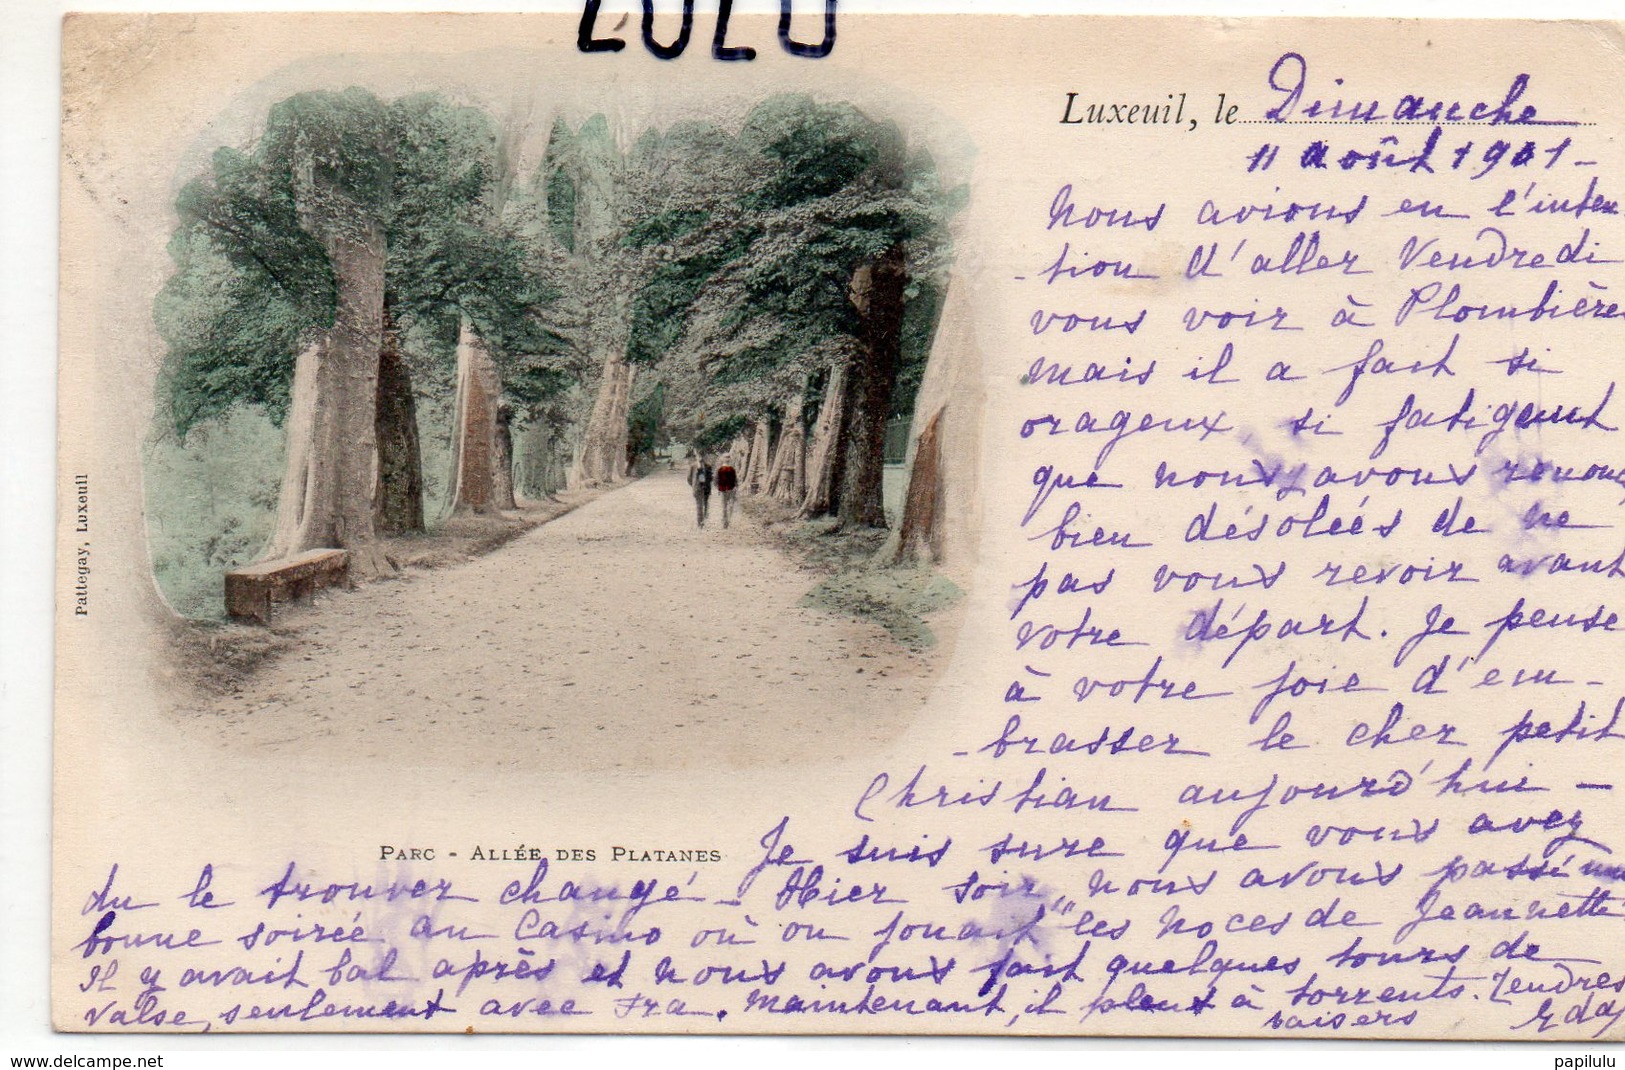 2020
Luxeuil, le Dimanche
11 août 1901 -
Nous avions eu l'inten
- tion d'aller Vendredi
vous voir à Plombières
mais il a fait si
orageux, si fatigant
que nous y avons renoncé
bien désolées de ne
pas vous revoir avant
votre départ. Je pense
à votre joie d'em -
- brasser le cher petit
Christian aujourd'hui -
Je suis sure que vous avez
du le trouver changé - Hier soir, nous avons passé une
bonne soirée au Casino où on jouait "les Noces de Jeannette"
Il y avait bal après et nous avons fait quelques tours de
valse, seulement avec Fra. Maintenant, il pleut à torrents. Tendres
baisers
Parc - Allée des Platanes
Pattegay, Luxeuil
papilulu
www.delcampe.net